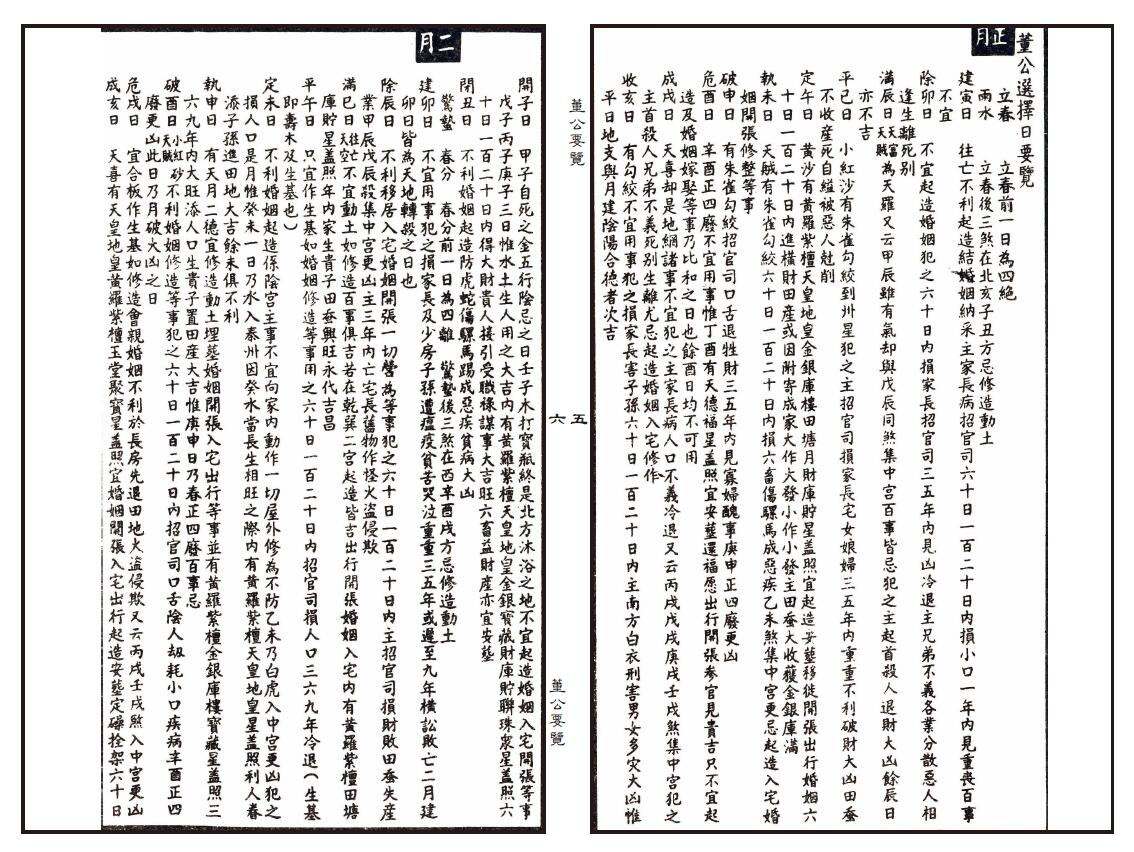 正月
董公選擇日要覽
立春 立春前一日為四絶
雨水 立春後三煞在北亥子丑方忌修造動土
建寅日 往亡不利起造結婚姻納采主家長病招官司六十日一百二十日內損小口一年內見重喪百事
不宜
除卯日 不宜起造婚姻犯之六十日內損家長招官司三五年內見凶冷退主兄弟不義各業分散惡人相
逢生離死别
滿辰日天富天賊為天羅又云甲辰雖有氣却與戊辰同煞集中宮百事皆忌犯之主起首殺人退財大凶餘辰日
亦不吉
平巳日 小紅沙有朱雀勾絞到州星犯之主招官司損家長宅女娘婦三五年內重重不利破財大凶田蚕
不收產死自縊被惡人尅削
定午日 黄沙有黄羅紫檀天皇地皇金銀庫樓田塘月財庫貯星盖照宜起造妥墓移徙開張出行婚姻六
十日一百二十日內進橫財田産或因附寄成家大作大發小作小發主田蚕大收獲金銀庫滿
執未日 天賊有朱雀勾絞六十日一百二十日內損六畜傷騾馬成惡疾乙未煞集中宮更忌起造入宅婚
姻開張修整等事
破申日 有朱雀勾絞招官司口舌退牲財三五年內見寡婦醜事庚申正四廢更凶
危酉日 辛酉正四廢不宜用事惟丁酉有天德福星盖照宜安塟還福愿出行開張参官見貴吉只不宜起
造及婚姻嫁娶等事乃比和之日也餘酉日均不可用
成戌日 天喜却是地網諸事不宜犯之主家長病人口不義冷退又云丙戌戊戌庚戌壬戌煞集中宮犯之
主首殺人兄弟不義死别生離尤忌起造婚姻入宅修作
收亥日 有勾絞不宜用事犯之損家長害子孫六十日一百二十日內主南方白衣刑害男女多灾大凶惟
平日地支與月建陰陽合德者次吉
董公要覽
五
六
董公要覽
二月
開子日 甲子自死之金五行陰忌之日壬子木打寶瓶終是北方沐浴之地不宜起造婚姻入宅開張等事
戊子丙子庚子三日惟水土生人用之大吉內有黄羅紫檀天皇地皇金銀寶藏財庫貯聯珠衆星盖照六
十日一百二十日內得大財貴人接引受職祿謀事大吉旺六畜益財産亦宜安塟
閉丑日 不利婚姻起造防虎蛇傷騾馬踢成惡疾貧病大凶
驚蟄 春分 春分前一日為四離 驚蟄後三煞在西辛酉戌方忌修造動土
建卯日 不宜用事犯之損家長及少房子孫遭瘟疫貧苦哭泣重重三五年或遲至九年橫訟敗亡二月建
卯日皆為天地轉殺之日也
除辰日 不利移居入宅婚姻開張一切營為等事犯之六十日一百二十日內主招官司損財敗田蚕失産
業甲辰戊辰殺集中宮更凶主三年內亡宅長舊物作怪火盗侵欺
滿巳日往亡天空不宜動土如修造百事俱吉若在乾巽二宮起造皆吉出行開張婚姻入宅內有黄羅紫檀田塘
庫貯星盖照年內家生貴子田蚕興旺永代吉昌
平午日 只宜作生基如婚姻修造等事用之六十日一百二十日內招官司損人口三六九年冷退(生基
即壽木及生基也)
定未日 不利婚姻起造係陰宮主事不宜向家內動作一切屋外修為不防乙未乃白虎入中宮更凶犯之
損人口是月惟癸未一日乃水入秦州因癸水當長生相旺之際內有黄羅紫檀天皇地皇星盖照利人眷
添子孫進田地大吉餘未俱不利
執申日 有天月二德宜修造動土埋塟婚姻開張入宅出行等事並有黄羅紫檀金銀庫樓寶藏星盖照三
六九年內大旺添人口生貴子置田産大吉惟庚申日乃春正四廢百事忌
破酉日小紅砂天賊不利婚姻修造等事犯之六十日一百二十日內招官司口舌陰人刼耗小口疾病辛酉正四
廢更凶此日乃月破大凶之日
危戌日 宜合板作生基如修造會親婚姻不利於長房先退田地火盗侵欺又云丙戌壬戌煞入中宮更凶
成亥日 天喜有天皇地皇黄羅紫檀玉堂聚寶星盖照宜婚姻開張入宅出行起造安塟定磉拴架六十日